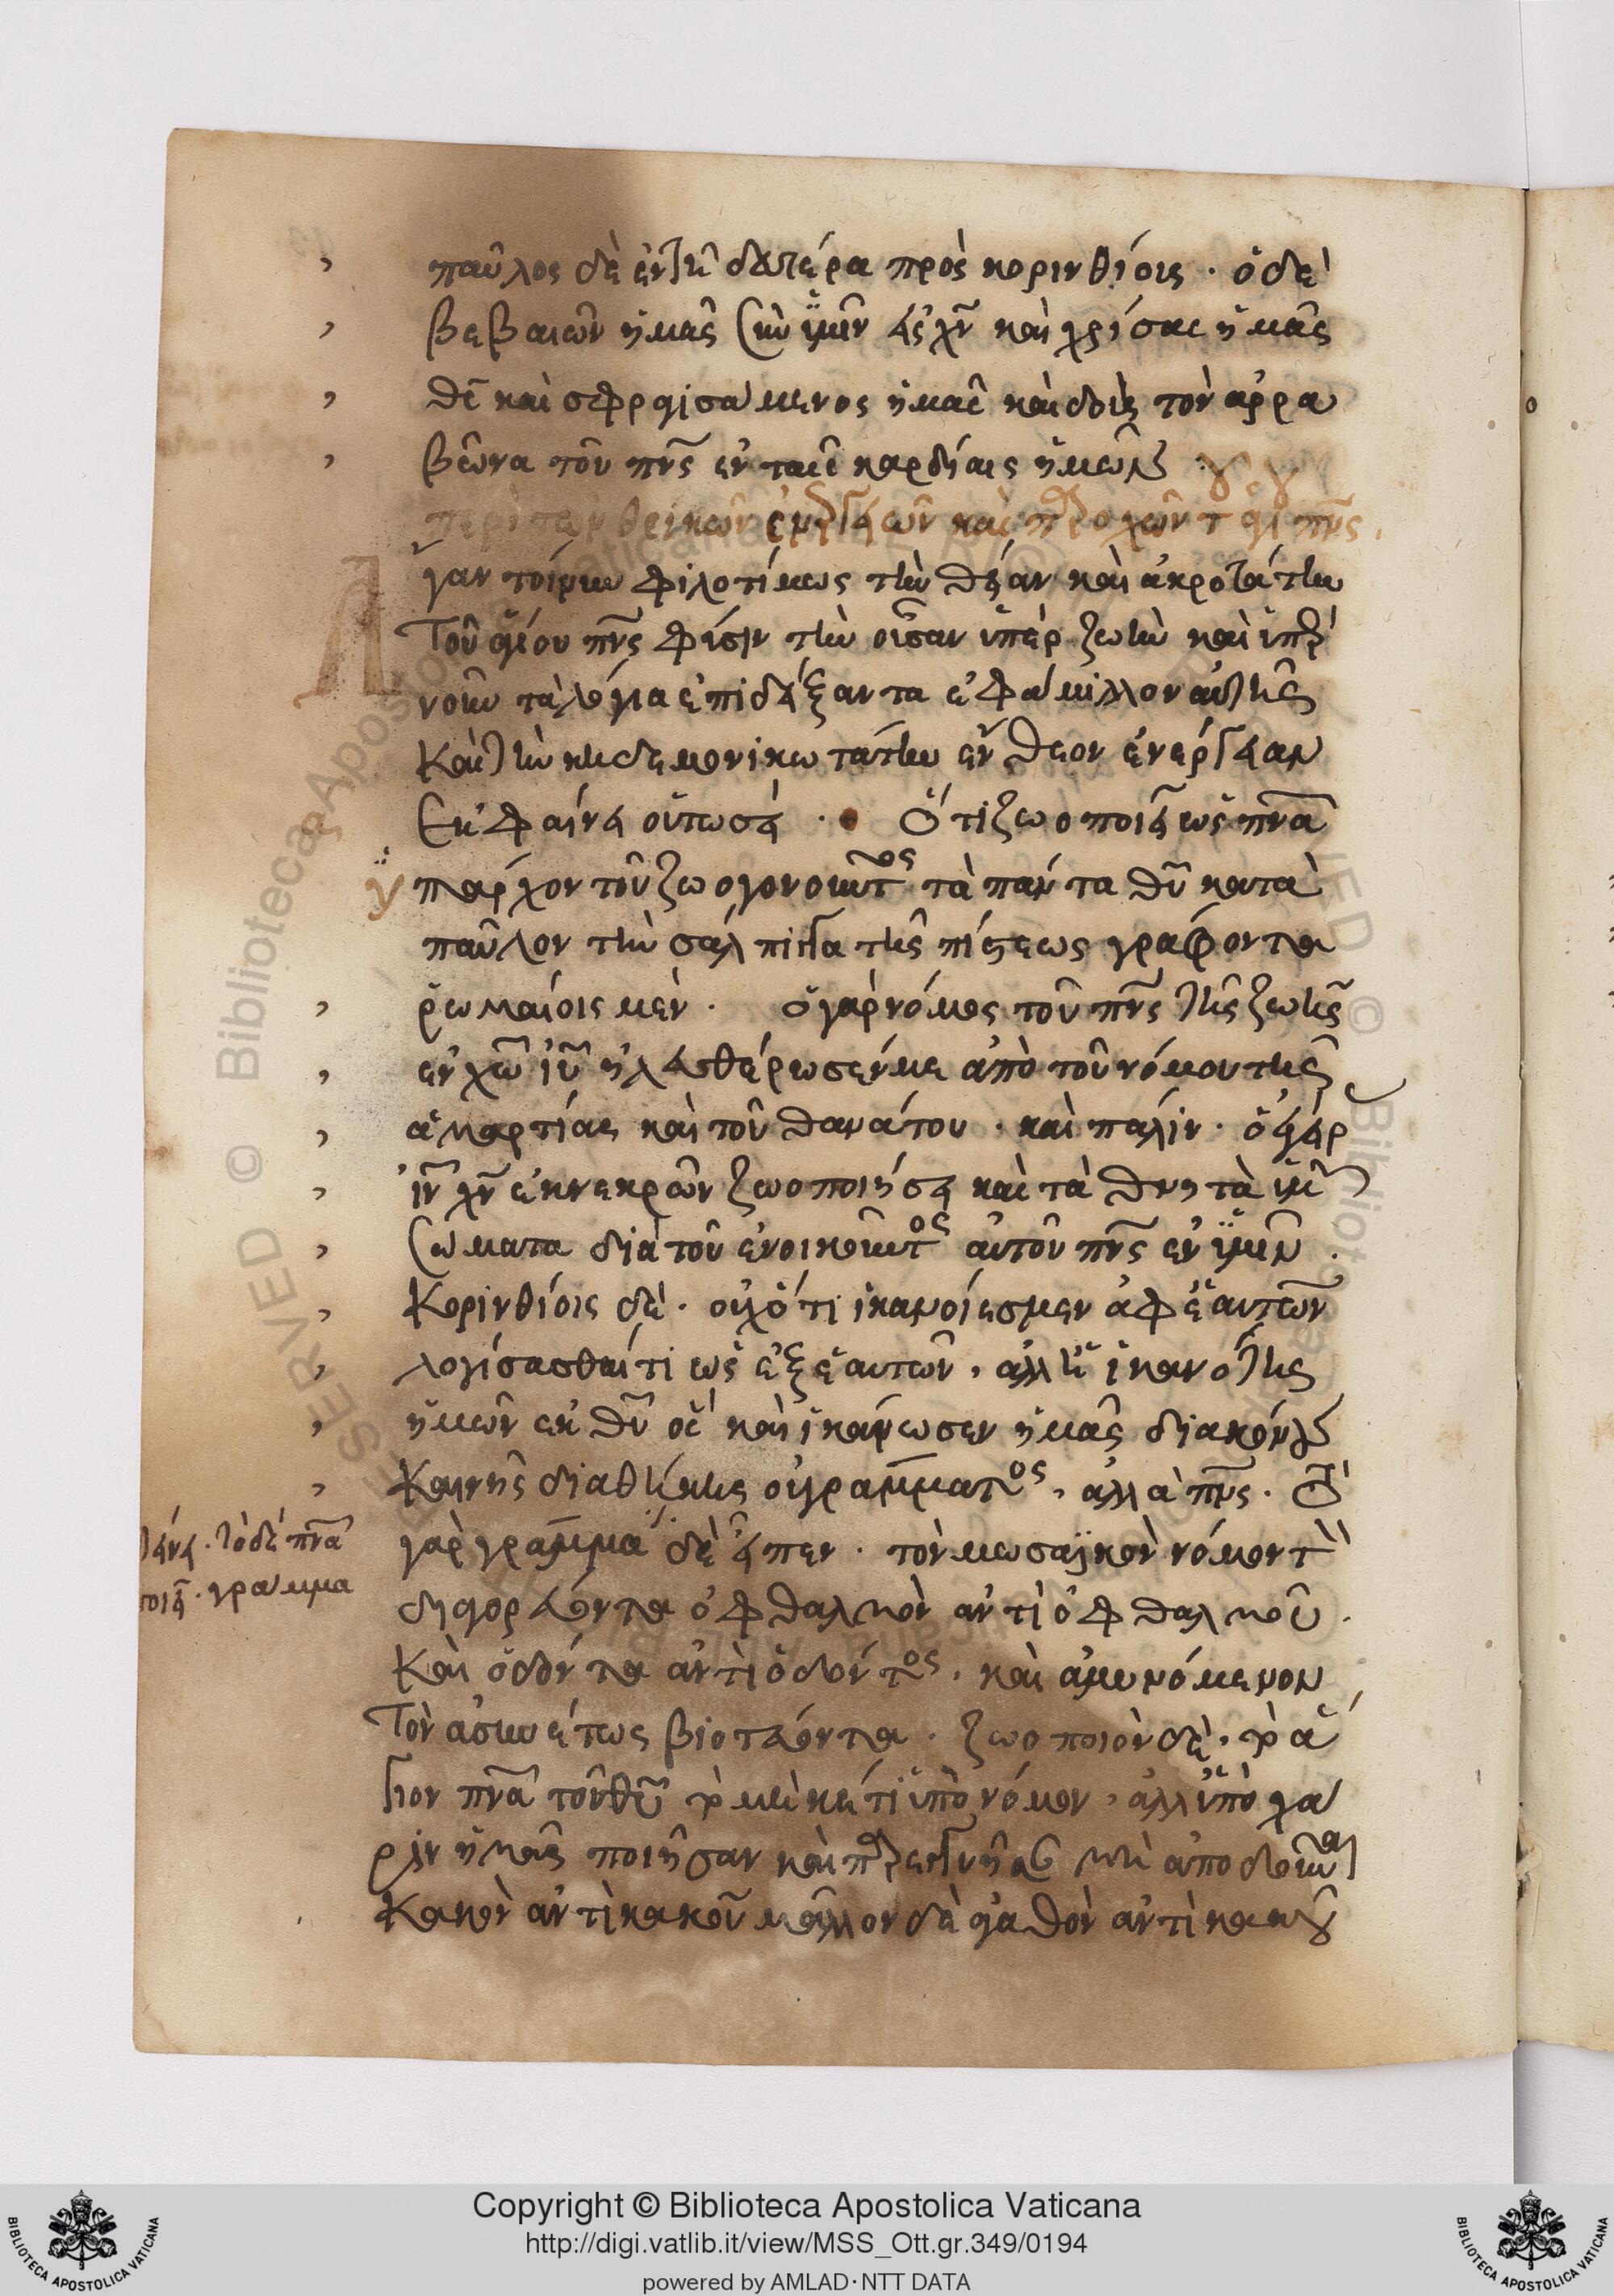 παῦλος δὲ ἐν τῇ δευτέρα πρὸς κορινθίοις · ὁ δὲ
βεβαιῶν ἡμᾶς σὺν ὑμῖν εἰς χν καὶ χρίσας ἡμᾶς
θς καὶ σφραγισάμενος ἡμᾶς καὶ δοὺς τὸν ἀρρα
βῶνα τοῦ πνς ἐν ταῖς καρδίαις ἡμῶν
περὶ τῶν θεικῶν ἐνεργειῶν καὶ παροχῶν τ ἁγι πνς
γαν τοίνυν φιλοτίμως τὴν θείαν καὶ ἀκροτάτην
τοῦ ἁγίου πνς φύσιν τὴν οὖσαν ὑπὲρ ζωὴν καὶ ὑπὲρ
νοῦν τὰ λόγια ἐπιδείξαντα ἐφάμιλλον αὐτῆς
καὶ τὴν κηδεμονικωτάτην ἔνθεον ἐνέργειαν
ἐκφαίνει οὕπωσεί · Ὅτι ζωοποιεῖ ὡς πνα
ὑπάρχον τοῦ ζωογονοῦντος τὰ πάντα θυ κατὰ
παῦλον τὴν σάλπιγγα τῆς πίστεως γράφοντα
ῥωμαίοις μέν · ὁ γὰρ νόμος τοῦ πνς τῆς ζωῆς
ἐν χω ιυ ἠλευθέρωσέν με ἀπὸ τοῦ νόμου τῆς
ἁμαρτίας καὶ τοῦ θανάτου · καὶ πάλιν · ὁ ἐγείρ
ιν χν ἐκ νεκρῶν ζωοποιήσει καὶ τὰ θνητὰ ὑμ
σώματα διὰ τοῦ ἐνοικοῦντος αὐτοῦ πνς ἐν ὑμῖν ·
Κορινθίοις δέ · οὐχ ὅτι ἱκανοί ἐσμεν ἀφ ἑαυτῶν
λογίσασθαί τι ὡς ἐξ ἑαυτῶν, ἀλλ ἡ ἱκανότης
ἡμῶν ἐκ θυ ὃς καὶ ἱκάνωσεν ἡμᾶς διακόνους
καινῆς διαθήκης οὐ γράμματος, ἀλλὰ πνς · Τὸ
γὰρ γράμμα δὲ εἶπεν · τὸν μωσαϊκὸν νόμον τὸν
δηγορεύοντα ὀφθαλμὸν ἀντὶ ὀφθαλμοῦ ·
καὶ ὀδόντα ἀντὶ ὀδόντος, καὶ ἀμυνόμενον
τὸν ἀσυνέτως βιοτεύοντα · ζωοποιὸν δὲ, τὸ ἅ
γιον πνα τοῦ θυ τὸ μηκέτι ὑπὸ νόμον, ἀλλ ὑπὸ χά
ριν ἡμᾶς ποιῆσαν καὶ μὴ ἀποδοῦναι
κακὸν ἀντὶ κακοῦ μᾶλλον δὲ ἀγαθὸν ἀντὶ κακοῦ
τείνει · τὸ δὲ πνα
ποιεῖ · γράμμα
Copyright © Biblioteca Apostolica Vaticana
http://digi.vatlib.it/view/MSS_Ott.gr.349/0194
powered by AMLAD·NTT DATA
BIBLIOTECA APOSTOLICA VATICANA
BIBLIOTECA APOSTOLICA VATICANA